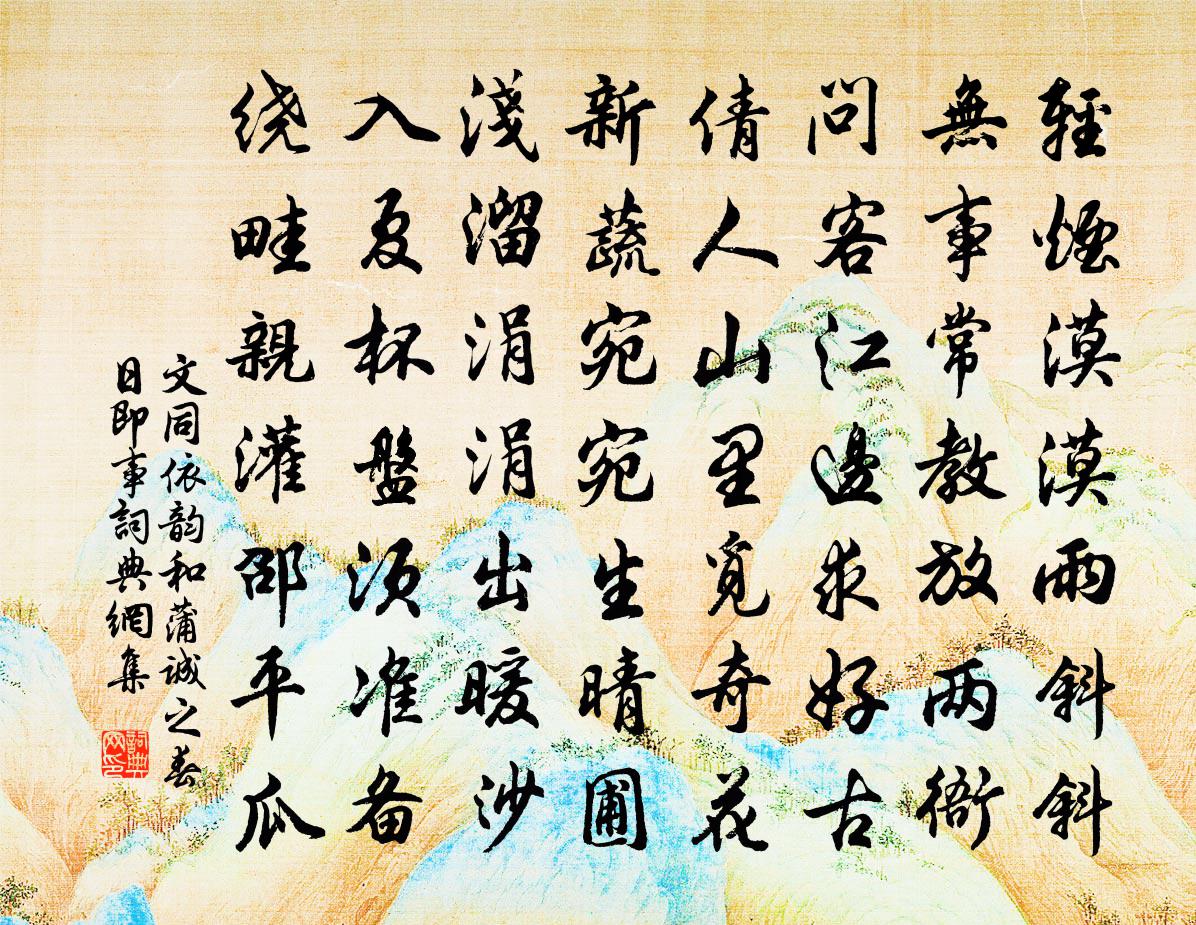 輕煙漠漠雨斜斜
無事常教放两衙
问客江邊求好古
倩人山里覓奇花
新蔬宛宛生晴圃
淺溜涓涓出暖沙
入夏杯盤須准备
绕畦親灌邵平瓜
文同依韵和蒲诚之春
日即事詞典網集
詞典
网印